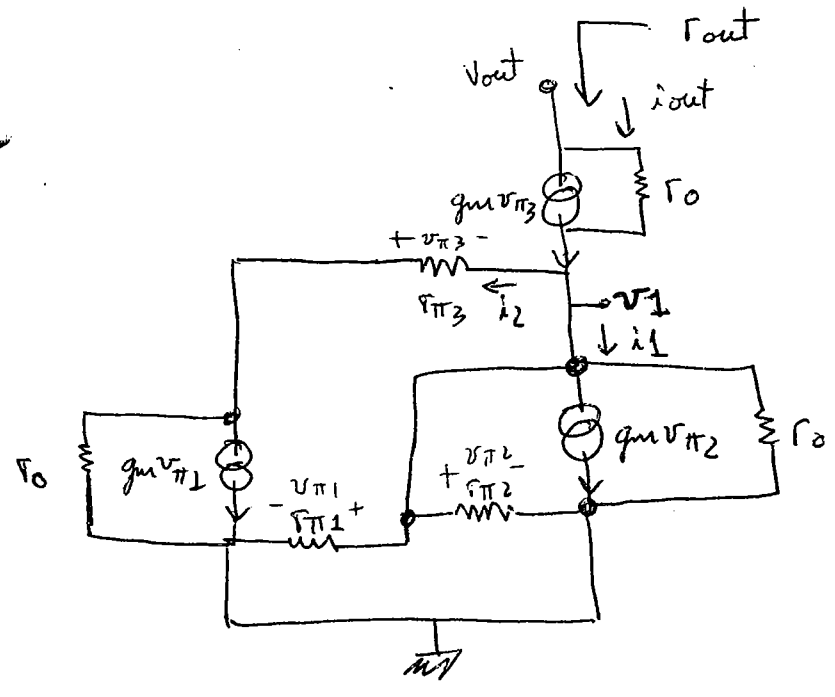 rout
vout
iout
gmvπ3
ro
+ vπ3 -
rπ3
i2
v1
i1
ro
gmvπ1
- vπ1 +
rπ1
+ vπ2 -
rπ2
gmvπ2
ro